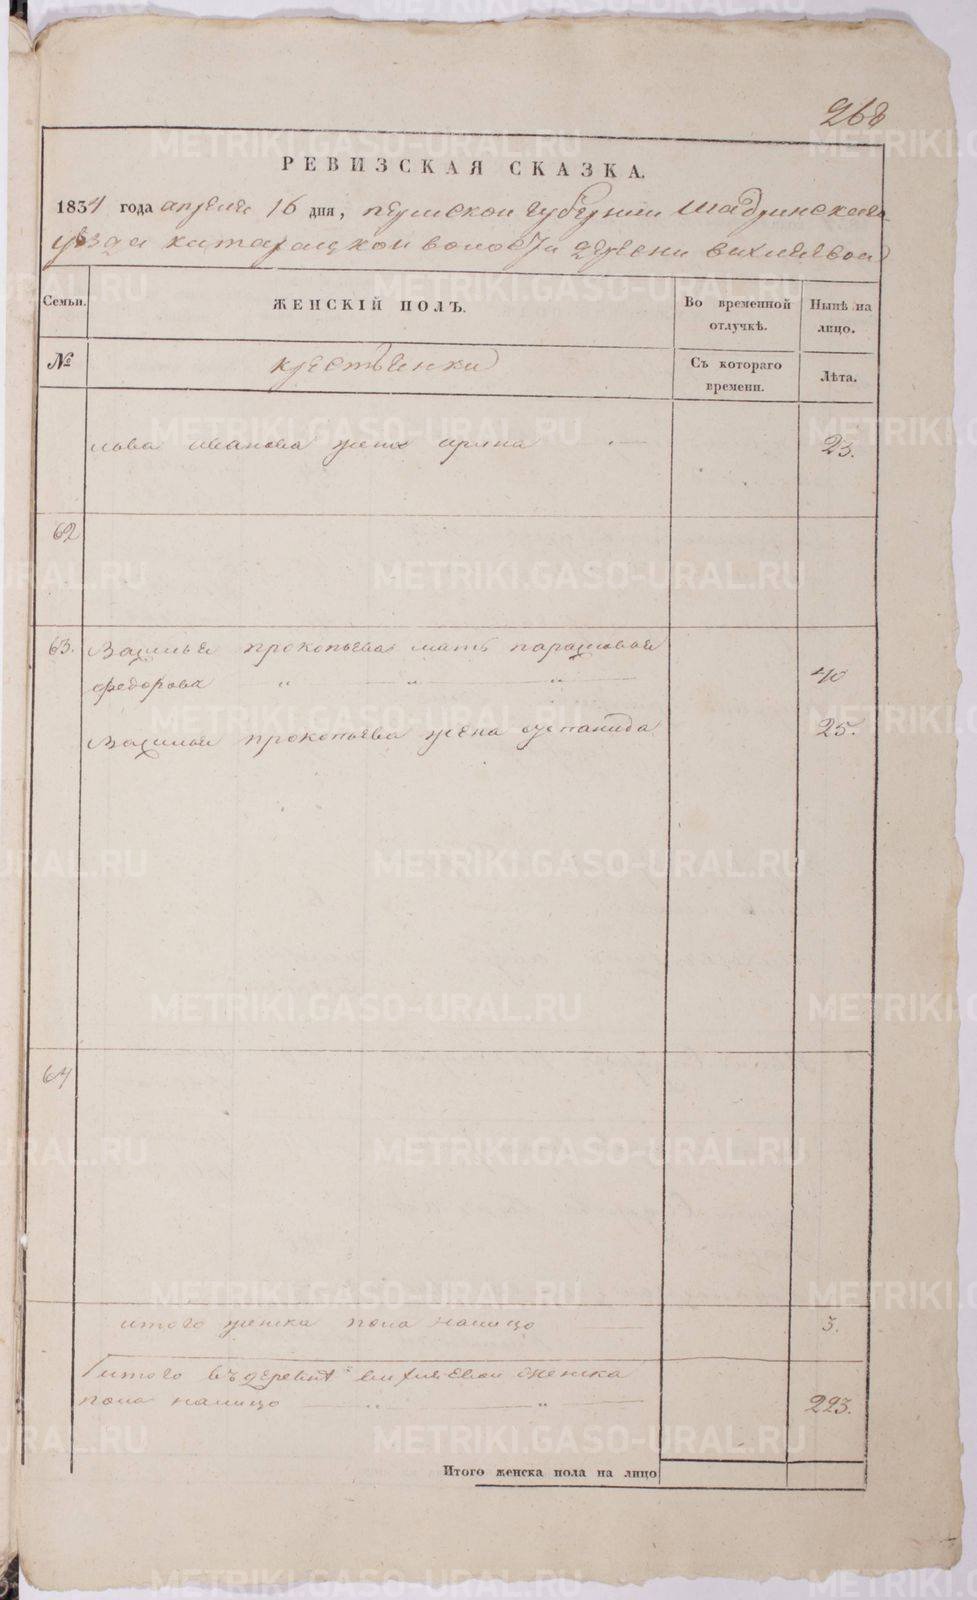 268
РЕВИЗСКАЯ СКАЗКА.
1834 года апреля 16 дня, пермской губернии Шадринскаго
уезда катарацкой волости деревни вихляевой
Семьи.
ЖЕНСКІЙ ПОЛЪ.
Во временной отлучкѣ.
Нынѣ на лицо.
№
крестьянки
Съ котораго времени.
Лѣта.
льва иванова жена ирина 23.
62
63. Василья прокопьева мать парасковья
федорова " " " 40
Василья прокопьева жена степанида 25.
64
итого женска пола налицо 3.
Итого въ деревнѣ вихляевой женска
пола налицо " " 223.
Итого женска пола на лицо
METRIKI.GASO-URAL.RU